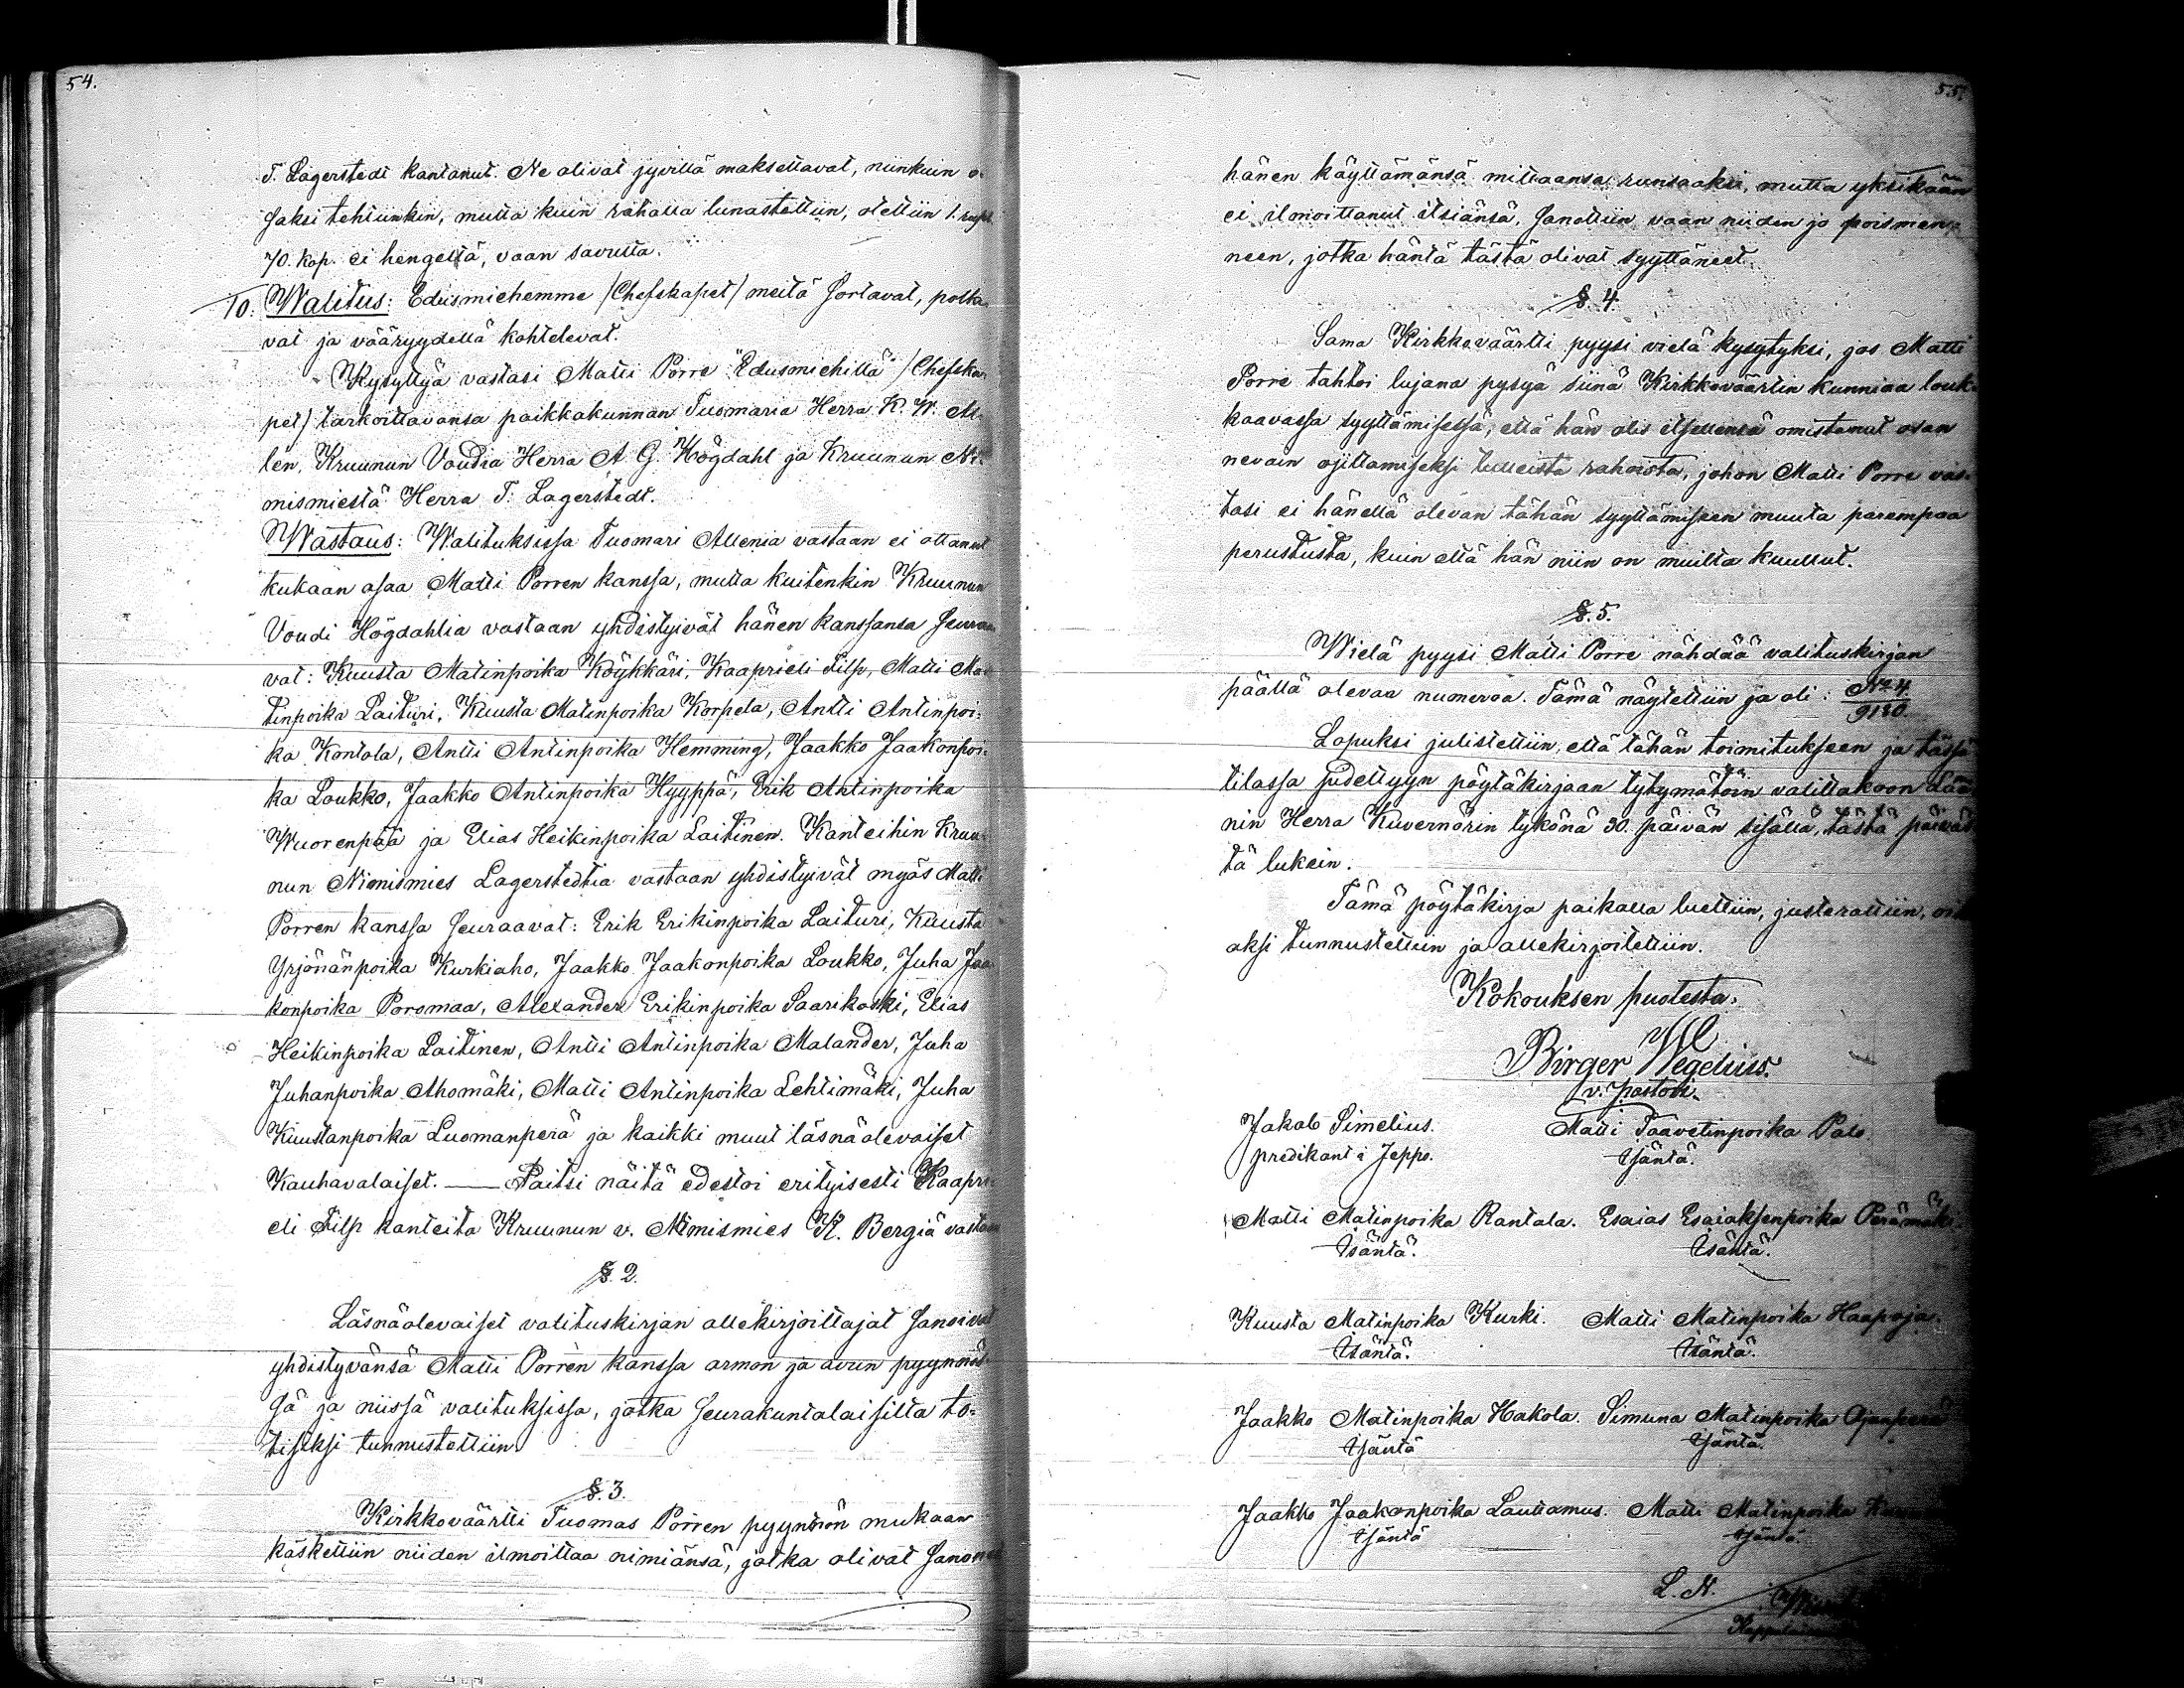 54.
T. Lagerstedt kantanut. Ne olivat jyvillä maksettavat, niinkuin o-
saksi tehtiinkin, mutta kuin rahalla lunastettiin, otettiin 1. rupl.
70. kop. ei hengeltä, vaan savulta.
10. Walitus: Edusmiehemme /Chefskapet/ meitä sortavat, polke-
vat ja vääryydellä kohtelevat.
Kysyttyä vastasi Matti Porre "Edusmiehillä" /Chefska-
pet/ tarkoittavansa paikkakunnan Tuomaria Herra K. W. Al-
len, Kruunun Voudia Herra A G. Högdahl ja Kruunun Ni-
mismiestä Herra T. Lagerstedt.
Wastaus: Walituksissa Tuomari Allenia vastaan ei ottanut
kukaan osaa Matti Porren kanssa, mutta kuitenkin Kruunun
Voudi Högdahlia vastaan yhdistyivät hänen kanssansa seuraa-
vat: Kuusta Matinpoika Köykkäri, Kaaprieli Filp, Matti Ma-
tinpoika Laituri, Kuusta Matinpoika Korpela, Antti Antinpoi-
ka Kontola, Antti Antinpoika Hemming, Jaakko Jaakonpoi-
ka Loukko, Jaakko Antinpoika Hyyppä, Erik Antinpoika
Wuorenpää ja Elias Heikinpoika Laitinen. Kanteihin Kruu-
nun Nimismies Lagerstedtia vastaan yhdistyivät myös Matti
Porren kanssa seuraavat: Erik Erikinpoika Laituri, Kuusta
Yrjönänpoika Kurkiaho, Jaakko Jaakonpoika Loukko, Juha Jaa-
konpoika Poromaa, Alexander Erikinpoika Saarikoski, Elias
Heikinpoika Laitinen, Antti Antinpoika Malander, Juha
Juhanpoika Ahomäki, Matti Antinpoika Lehtimäki, Juha
Kuustanpoika Luomanperä ja kaikki muut läsnäolevaiset
Kauhavalaiset. — Paitsi näitä edestoi erityisesti Kaapri-
eli Filp kanteita Kruunun v. Nimismies K. Bergiä vastaan
§. 2.
Läsnäolevaiset valituskirjan allekirjoittajat sanoivat
yhdistyvänsä Matti Porren kanssa armon ja avun pyynnös-
sä ja niissä valituksissa, jotka seurakuntalaisilta to-
tiseksi tunnustettiin
§. 3.
Kirkkoväärtti Tuomas Porren pyynnön mukaan
käskettiin niiden ilmoittaa nimiänsä, jotka olivat sanoneet
55.
hänen käyttämänsä mittaansa runsaaksi, mutta yksikään
ei ilmoittanut itsiänsä, sanottiin vaan niiden jo poismen-
neen, jotka häntä tästä olivat syyttäneet.
§. 4.
Sama Kirkkoväärtti pyysi vielä kysytyksi, jos Matti
Porre tahtoi lujana pysyä siinä Kirkkoväärtin kunniaa louk-
kaavassa syyttämisessä, että hän olis itsellensä omistanut osan
nevain ojittamiseksi tulleista rahoista, johon Matti Porre vas-
tasi ei hänellä olevan tähän syyttämiseen muuta parempaa
perustusta, kuin että hän niin on muilta kuullut.
§. 5.
Wielä pyysi Matti Porre nähdää valituskirjan
päällä olevaa numeroa. Tämä näytettiin ja oli: No 4.
9180.
Lopuksi julistettiin, että tähän toimitukseen ja tässä
tilassa pidettyyn pöytäkirjaan tytymätöin valittakoon Lää-
nin Herra Kuvernörin tykönä 30. päivän sisällä, tästä päiväs-
tä lukein.
Tämä pöytäkirja paikalla luettiin, justerattiin, oi-
aksi tunnustettiin ja allekirjoitettiin.
Kokouksen puolesta.
Birger Wegelius.
v. pastori.
Jakob Simelius. Matti Taavetinpoika Palo.
predikant i Jeppo. Isäntä.
Matti Matinpoika Rantala. Esaias Esaiaksenpoika Perämäki.
Isäntä. Isäntä.
Kuusta Matinpoika Kurki. Matti Matinpoika Haapoja.
Isäntä. Isäntä.
Jaakko Matinpoika Hakola. Simuna Matinpoika Ojanperä
Isäntä Isäntä.
Jaakko Jaakonpoika Lauttamus. Matti Matinpoika
Isäntä Isäntä.
L. N.